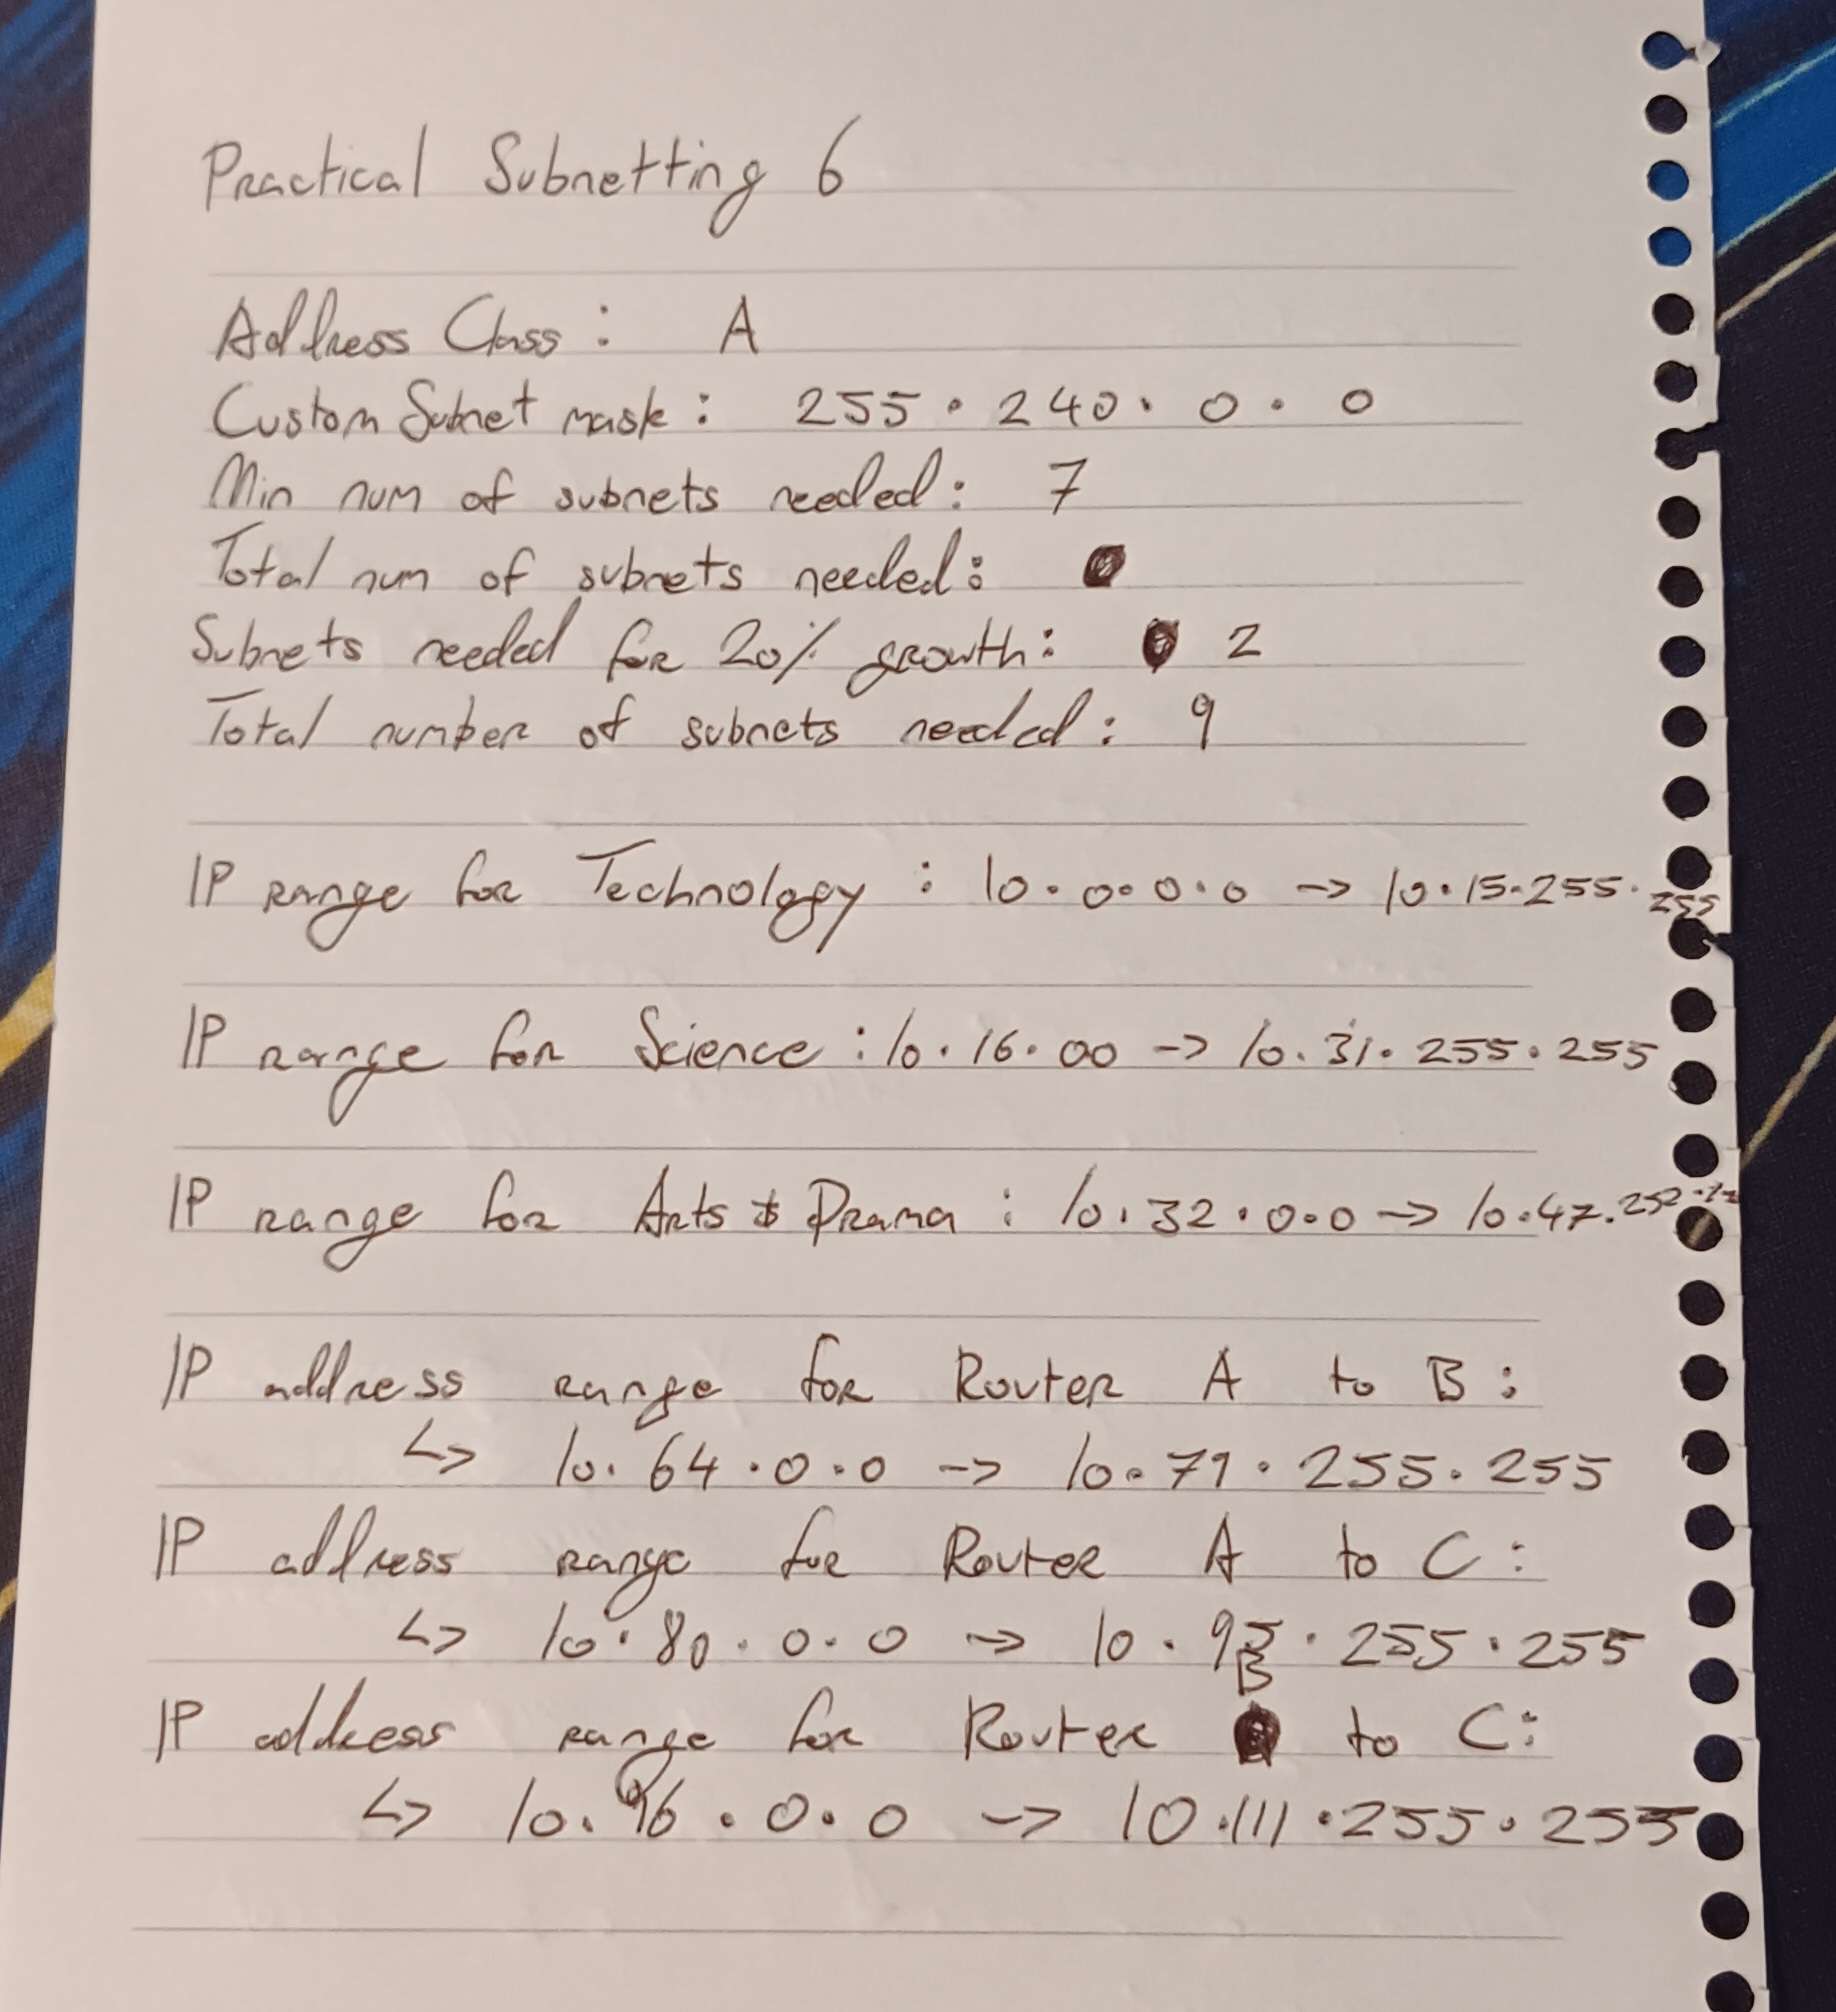 Practical Subnetting 6
Address Class : A
Custom Subnet mask : 255 . 240 . 0 . 0
Min num of subnets needed : 7
Total num of subnets needed :
Subnets needed for 20% growth : 2
Total number of subnets needed : 9
IP range for Technology : 10.0.0.0 -> 10.15.255.255
IP range for Science : 10.16.00 -> 10.31.255.255
IP range for Arts & Drama : 10.32.0.0 -> 10.47.
IP address range for Router A to B :
↳ 10.64.0.0 -> 10.79.255.255
IP address range for Router A to C :
↳ 10.80.0.0 -> 10.95.255.255
IP address range for Router B to C :
↳ 10.96.0.0 -> 10.111.255.255